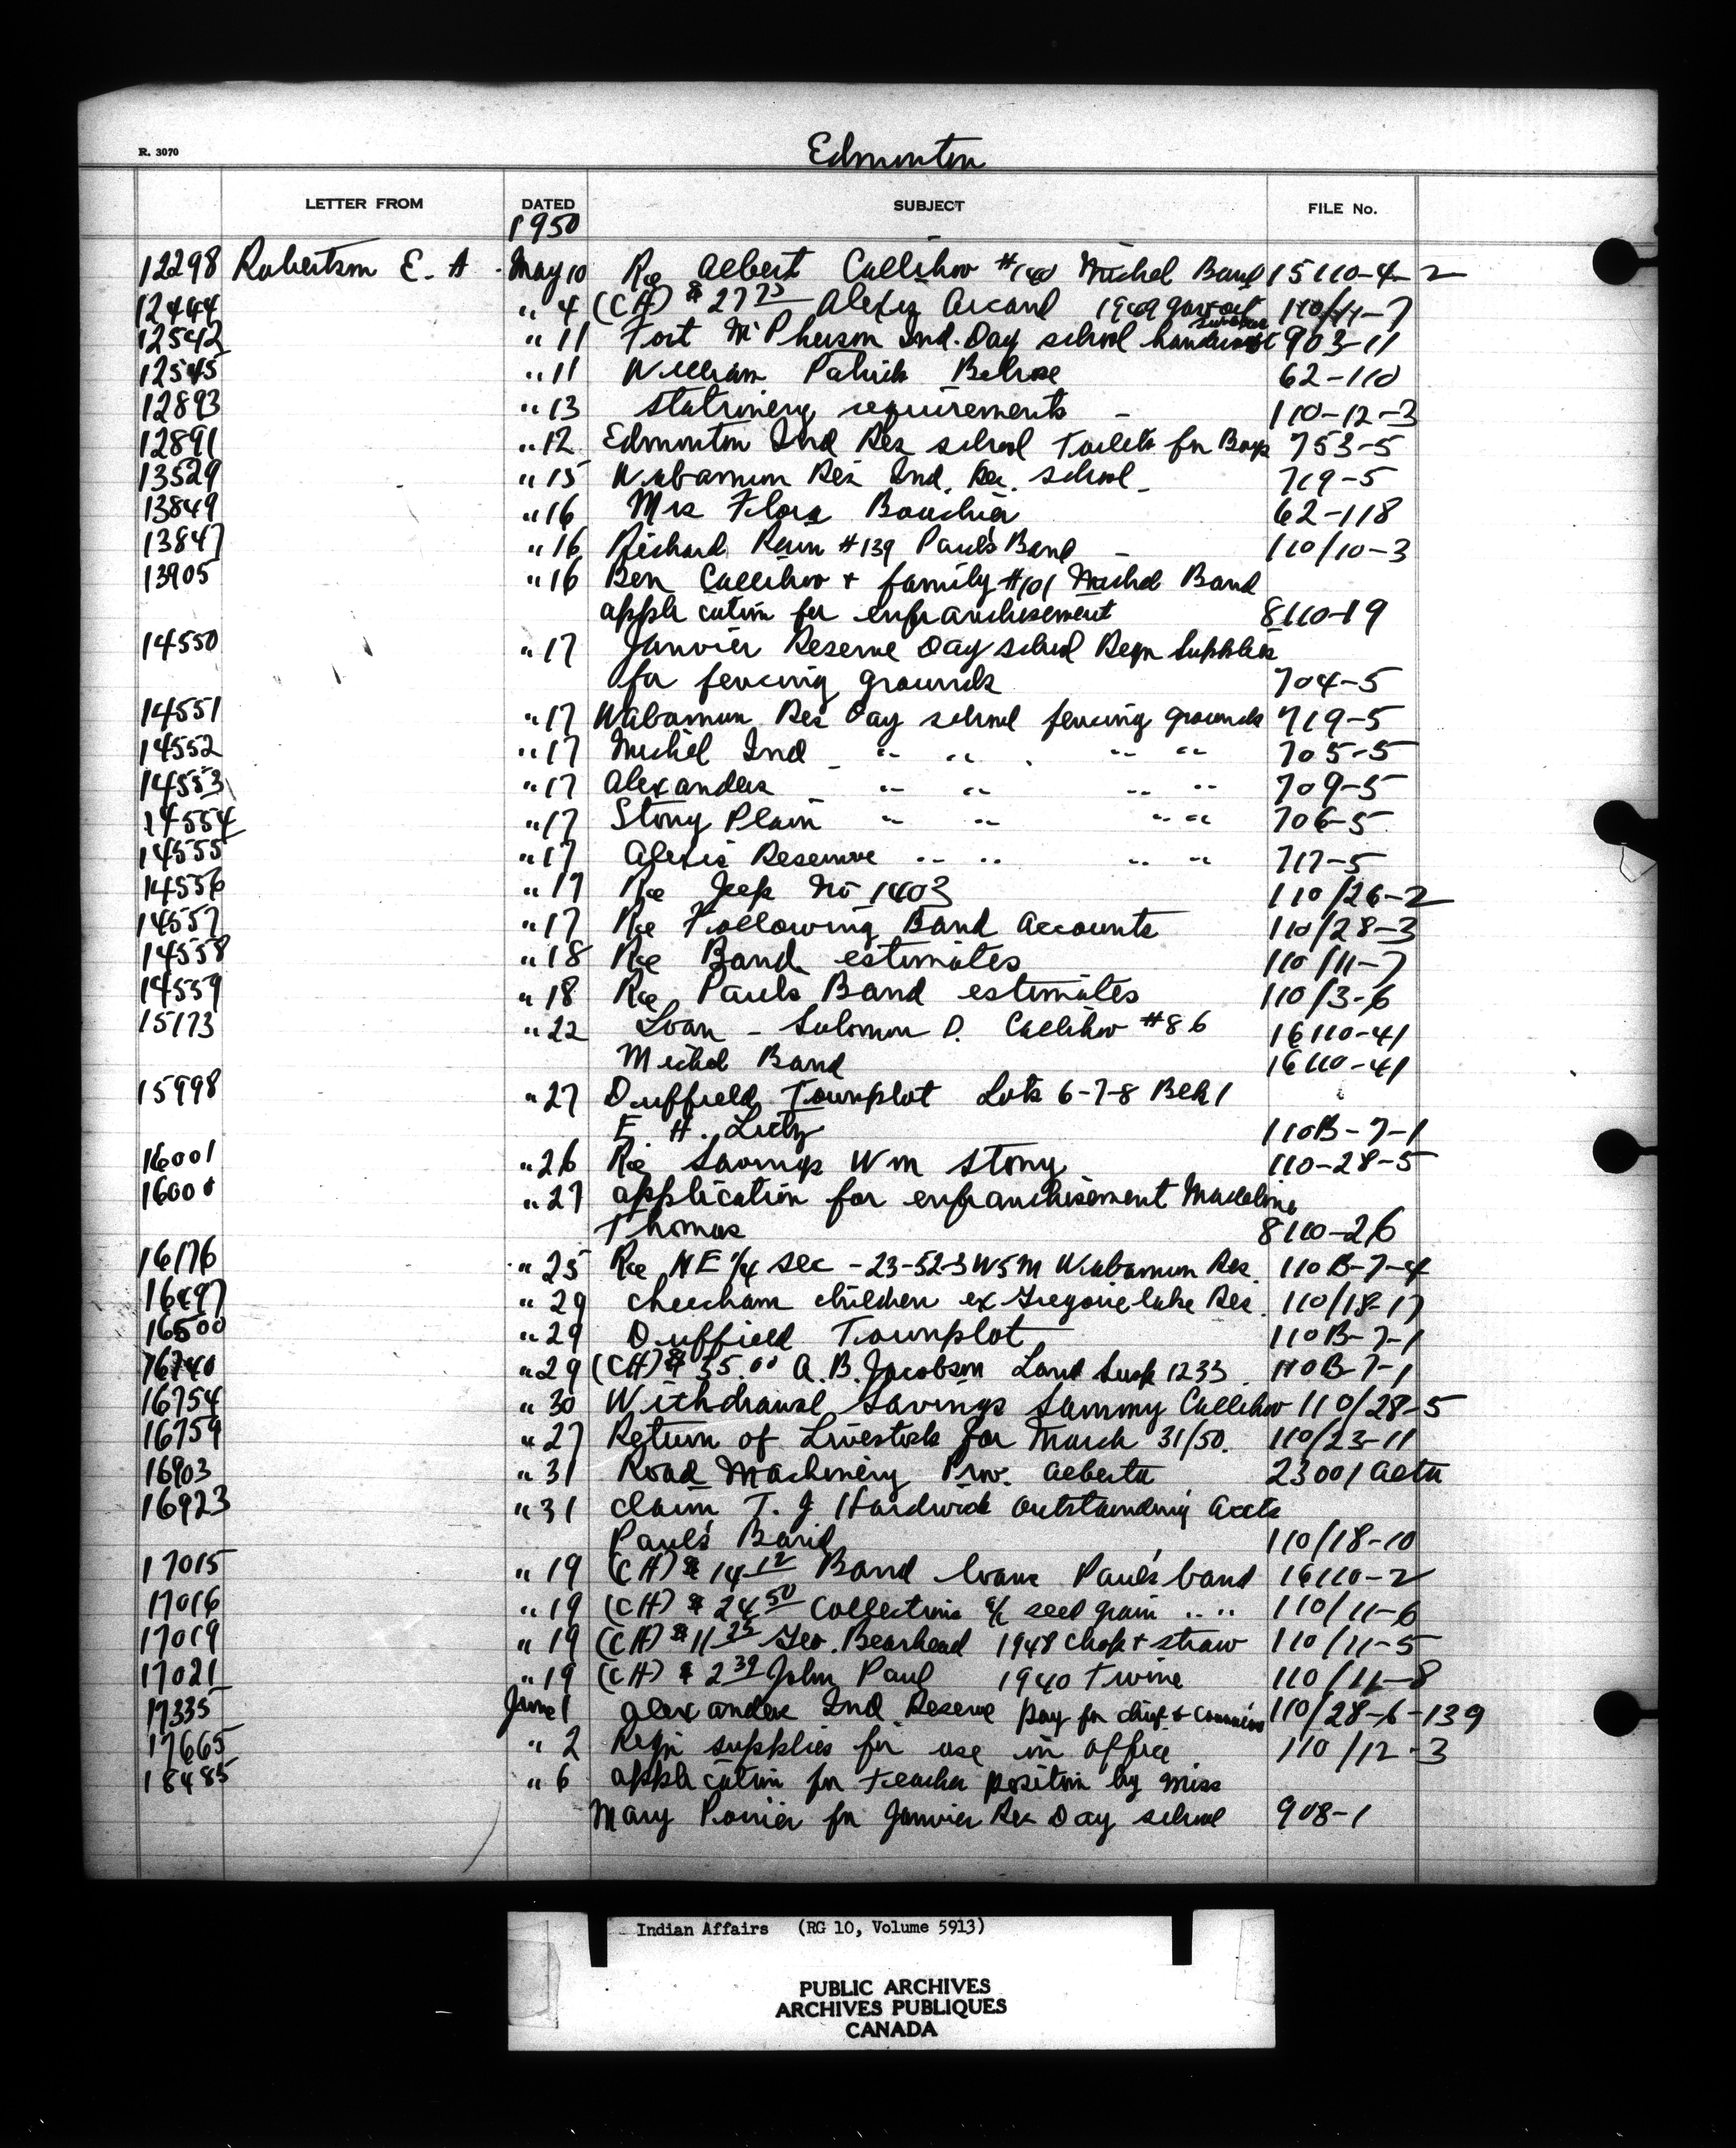 R. 3070
Edmonton
LETTER FROM DATED SUBJECT FILE No.
1950
12298 Robertson E. A. May 10 Re Albert Callihoo #140 Michel Band 15110-4-2
12444 " 4 (CH) $ 27 75 Alexis Arcand 1949 110/11-7
12542 " 11 Fort McPherson Ind. Day school 903-11
12545 " 11 William Patrick Belrose 62-110
12893 " 13 Stationery requirements - 110-12-3
12891 " 12 Edmonton Ind Res school Toilets for Boys 753-5
13529 " 15 Wabamun Res Ind. Res. school 719-5
13849 " 16 Mrs Flora Bouchier 62-118
13847 " 16 Richard Rain #139 Paul's Band - 110/10-3
13905 " 16 Ben Callihoo + family #101 Michel Band
application for enfranchisement 8110-19
14550 " 17 Janvier Reserve Day school Reqn Supplies
for fencing grounds 704-5
14551 " 17 Wabamun Res Day school fencing grounds 719-5
14552 " 17 Michel Ind " " " " 705-5
14553 " 17 Alexanders " " " " 709-5
14554 " 17 Stony Plain " " " " 706-5
14555 " 17 Alexis Reserve " " " " 717-5
14556 " 17 Re Jeep No 1403 110/26-2
14557 " 17 Re Following Band Accounts 110/28-3
14558 " 18 Re Band estimates 110/11-7
14559 " 18 Re Pauls Band estimates 110/3-6
15173 " 22 Loan - Solomon D. Callihoo #86 16110-41
Michel Band 16110-41
15998 " 27 Duffield Townplot Lots 6-7-8 Blk 1
E. H. 110B-7-1
16001 " 26 Re Savings Wm Stony 110-28-5
16000 " 27 application for enfranchisement Madeline
Thomas 8110-26
16176 " 25 Re NE 1/4 sec - 23-52-3 W5M Wabamun Res. 110B-7-4
16497 " 29 Cheecham children ex Gregoire lake Res. 110/18-17
16500 " 29 Duffield Townplot 110B-7-1
16740 " 29 (CH) $ 35.00 A. B. Jacobson Land Susp 1233 110B-7-1
16754 " 30 Withdrawal Savings Sammy Callihoo 110/28-5
16759 " 27 Return of Livestock for March 31/50. 110/23-11
16903 " 31 Road Machinery Prov. Alberta 23001 Alta
16923 " 31 claim T. J Hardwick outstanding accts
Paul's Band 110/18-10
17015 " 19 (CH) $ 14 12 Band loans Paul's band 16110-2
17016 " 19 (CH) $ 24 50 Collections a/c seed grain " " 110/11-6
17019 " 19 (CH) $ 11 25 Geo. Bearhead 1948 chop + straw 110/11-5
17021 " 19 (CH) $ 2 39 John Paul 1940 Twine 110/11-8
17335 June 1 Alexander Ind Reserve pay for chief + 110/28-6-139
17665 " 2 Reqn supplies for use in office 110/12-3
18485 " 6 application for teacher position by Miss
Mary for Janvier Res Day school 908-1
Indian Affairs (RG 10, Volume 5913)
PUBLIC ARCHIVES
ARCHIVES PUBLIQUES
CANADA